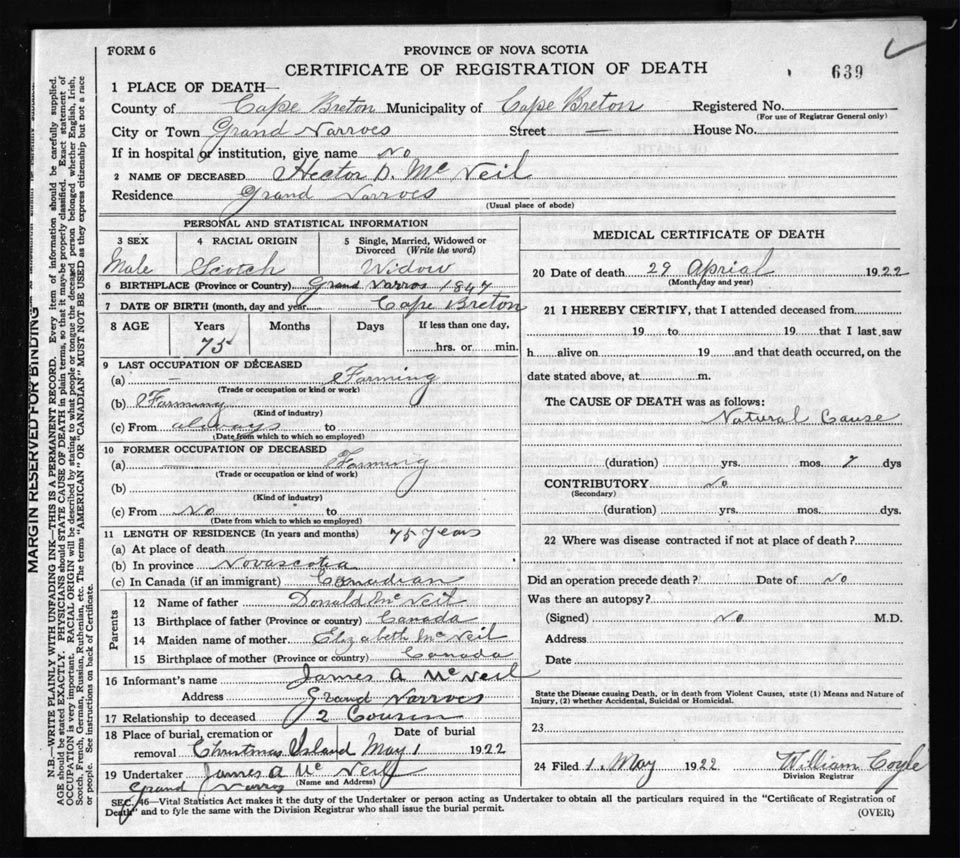 FORM 6
PROVINCE OF NOVA SCOTIA
CERTIFICATE OF REGISTRATION OF DEATH
639
1 PLACE OF DEATH—
County of Cape Breton Municipality of Cape Breton Registered No.
(For use of Registrar General only)
City or Town Grand Narroes Street — House No.
If in hospital or institution, give name No
2 NAME OF DECEASED Hector D. Mc Neil
Residence Grand Narroes
(Usual place of abode)
PERSONAL AND STATISTICAL INFORMATION
3 SEX 4 RACIAL ORIGIN 5 Single, Married, Widowed or Divorced (Write the word)
Male Scotch Widow
6 BIRTHPLACE (Province or Country) Grand Narros 1847
7 DATE OF BIRTH (month, day and year) Cape Breton
8 AGE Years Months Days If less than one day,
75 hrs. or min.
9 LAST OCCUPATION OF DECEASED
(a) — Farming
(Trade or occupation or kind or work)
(b) Farming
(Kind of industry)
(c) From always to
(Date from which to which so employed)
10 FORMER OCCUPATION OF DECEASED
(a) — Farming
(Trade or occupation or kind of work)
(b)
(Kind of industry)
(c) From No to
(Date from which to which so employed)
11 LENGTH OF RESIDENCE (In years and months) 75 Years
(a) At place of death
(b) In province Novascotia
(c) In Canada (if an immigrant) Canadian
Parents
12 Name of father Donald Mc Neil
13 Birthplace of father (Province or country) Canada
14 Maiden name of mother Elizabeth Mc Neil
15 Birthplace of mother (Province or country) Canada
16 Informant's name James A McNeil
Address Grand Narroes
17 Relationship to deceased 2 Cousin
18 Place of burial, cremation or removal Christmas Island Date of burial May 1 1922
19 Undertaker James A Mc Neil
(Name and Address)
Grand Narros
MEDICAL CERTIFICATE OF DEATH
20 Date of death 29 Aprial 1922
(Month, day and year)
21 I HEREBY CERTIFY, that I attended deceased from
19 to 19 that I last saw
h alive on 19 and that death occurred, on the
date stated above, at m.
The CAUSE OF DEATH was as follows:
Natural Cause
(duration) yrs. mos. 7 dys
CONTRIBUTORY No
(Secondary)
(duration) yrs. mos. dys.
22 Where was disease contracted if not at place of death?
Did an operation precede death? Date of No
Was there an autopsy?
(Signed) No M.D.
Address
Date
State the Disease causing Death, or in death from Violent Causes, state (1) Means and Nature of
Injury, (2) whether Accidental, Suicidal or Homicidal.
23
24 Filed 1. May 1922 William Coyle
Division Registrar
SEC. 46—Vital Statistics Act makes it the duty of the Undertaker or person acting as Undertaker to obtain all the particulars required in the "Certificate of Registration of
Death" and to fyle the same with the Division Registrar who shall issue the burial permit.
(OVER)
MARGIN RESERVED FOR BINDING
N.B.—WRITE PLAINLY WITH UNFADING INK—THIS IS A PERMANENT RECORD. Every item of information should be carefully supplied.
AGE should be stated EXACTLY. PHYSICIANS should STATE CAUSE OF DEATH in plain terms, so that it may be properly classified. Exact statement of
OCCUPATION is very important. RACIAL ORIGIN will be described by stating to what people or tongue the deceased person belonged whether English, Irish,
Scotch, French, German, Russian, Ruthenian, etc. The terms "AMERICAN" OR "CANADIAN" MUST NOT BE USED as they express citizenship but not a race
or people. See instructions on back of Certificate.